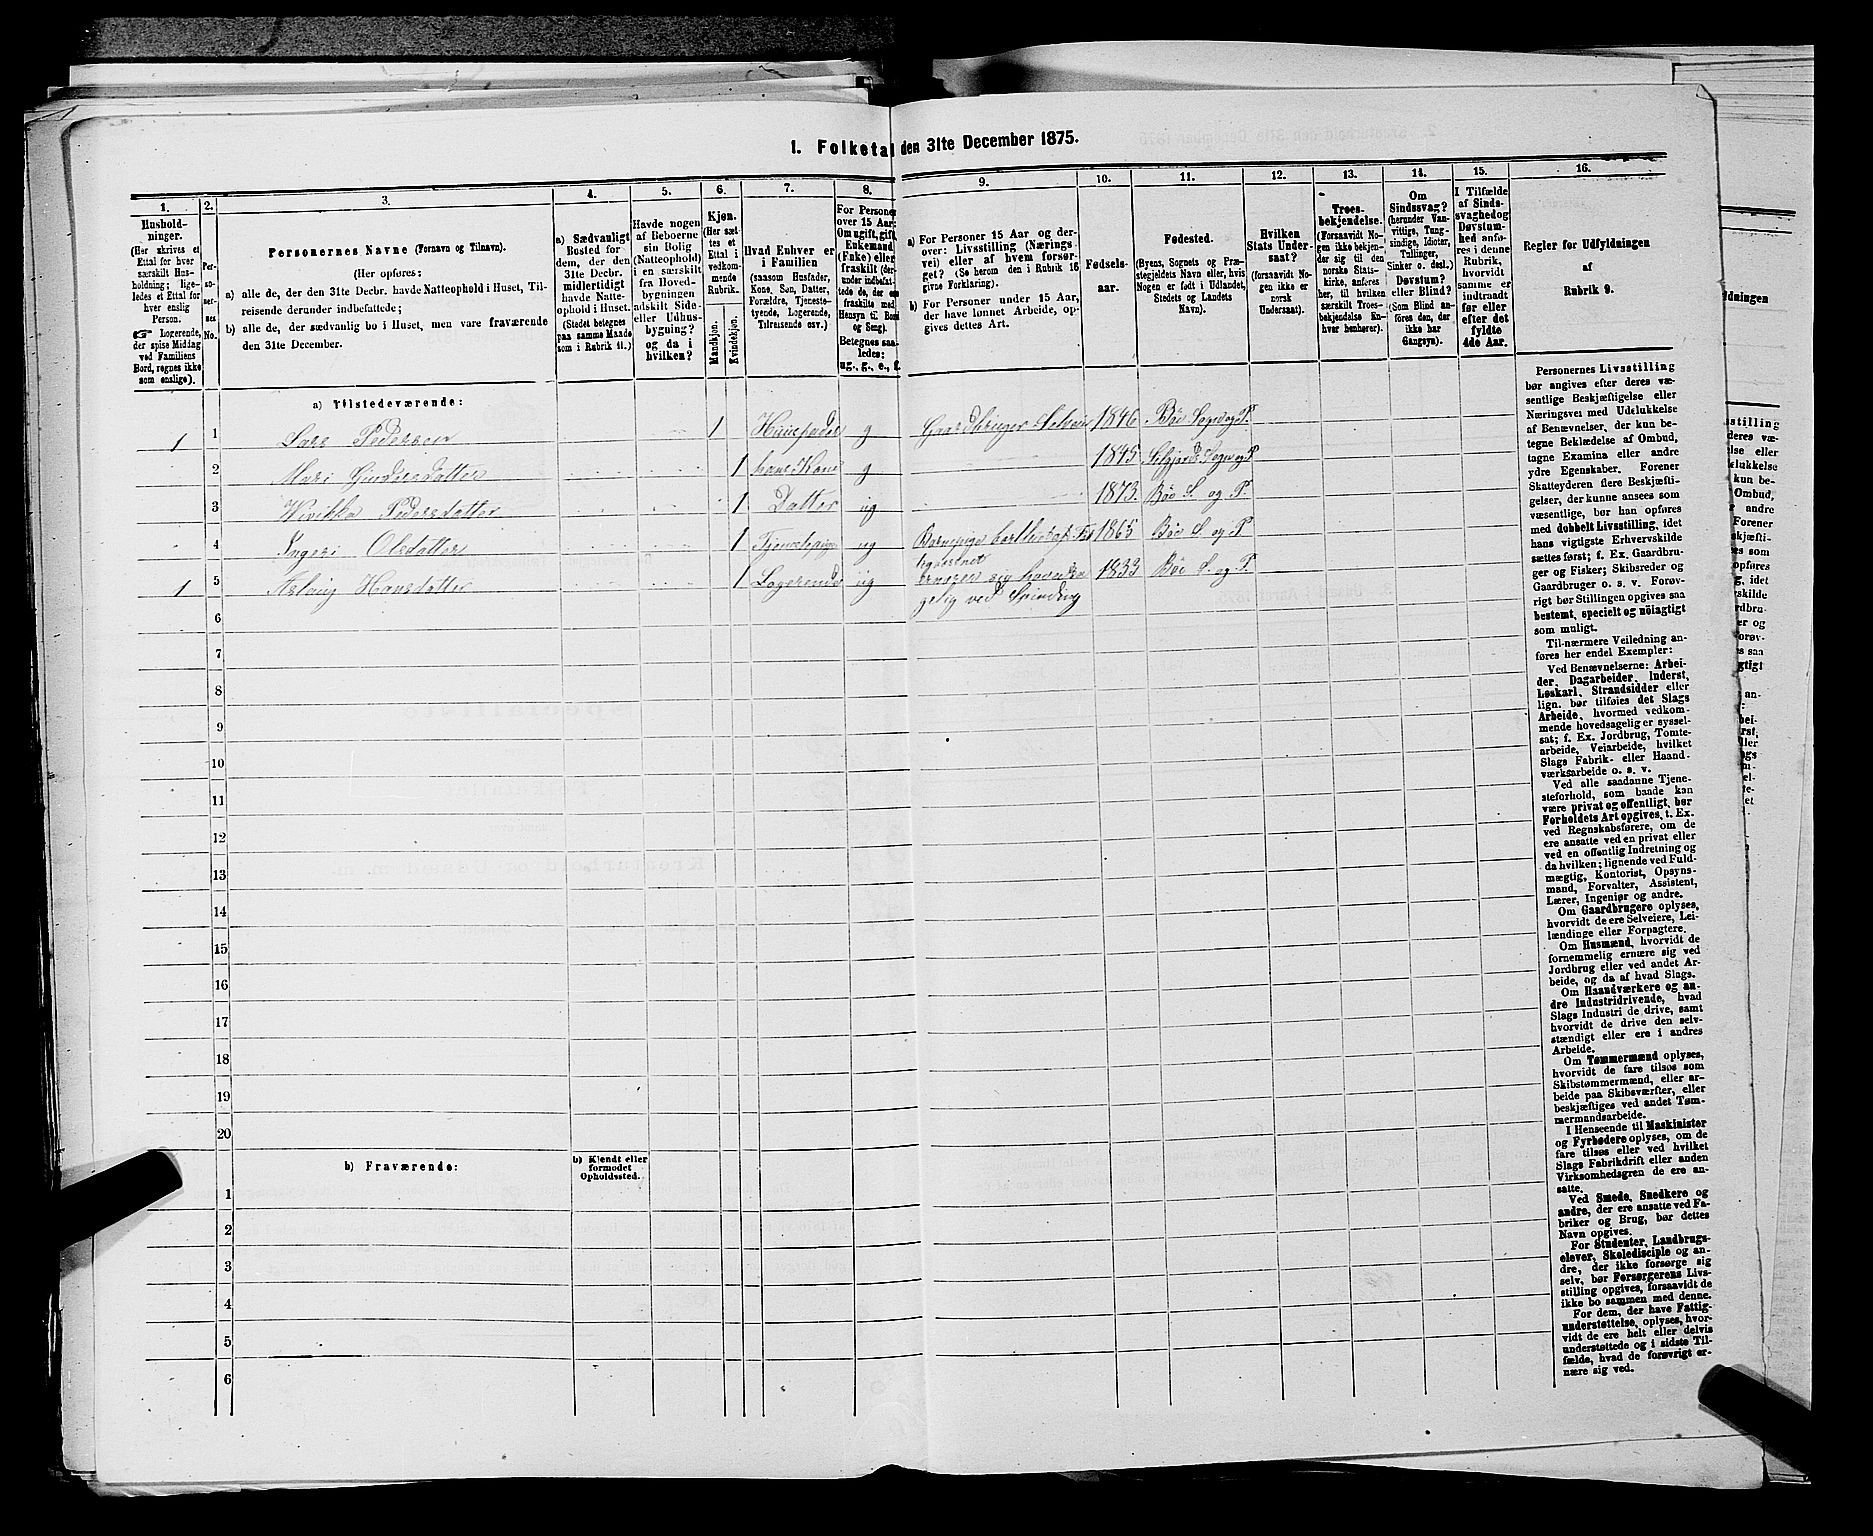 1. Folketal den 31te December 1875.
1.
Hushold-
ninger.
(Her skrives et
Ettal for hver
særskilt Hus-
holdning; lige-
ledes et Ettal for
hver enslig
Person.
☞ Logerende,
der spise Middag
ved Familiens
Bord, regnes ikke
som enslige).
2.
Per-
so-
ner-
nes
No.
3.
Personernes Navne (Fornavn og Tilnavn).
(Her opføres:
a) alle de, der den 31te Decbr. havde Natteophold i Huset, Til-
reisende derunder indbefattede;
b) alle de, der sædvanlig bo i Huset, men vare fraværende
den 31te December.
4.
a) Sædvanligt
Bosted for
dem, der den
31te Decbr.
midlertidigt
havde Natte-
ophold i Huset.
(Stedet betegnes
paa samme Maade
som i Rubrik 11.)
5.
Havde nogen
af Beboerne
sin Bolig
(Natteophold)
i en særskilt
fra Hoved-
bygningen
adskilt Side-
eller Udhus-
bygning?
og da i
hvilken?
6.
Kjøn.
(Her sæt-
tes et
Ettal i
vedkom-
mende
Rubrik.
Mandkjøn.
Kvindekjøn.
7.
Hvad Enhver er
i Familien
(saasom Husfader,
Kone, Søn, Datter,
Forældre, Tjeneste-
tyende, Logerende,
Tilreisende osv.)
8.
For Personer
over 15 Aar:
Om ugift, gift,
Enkemand
(Enke) eller
fraskilt (der-
under indbefat-
tede de, der ere
fraskilte med
Hensyn til Bord
og Seng).
Betegnes saa-
ledes:
ug., g., e., f.
9.
a) For Personer 15 Aar og der-
over: Livsstilling (Nærings-
vei) eller af hvem forsør-
get? (Se herom den i Rubrik 16
givne Forklaring).
b) For Personer under 15 Aar,
der have lønnet Arbeide, op-
gives dettes Art.
10.
Fødsels-
aar.
11.
Fødested.
(Byens, Sognets og Præ-
stegjeldets Navn eller, hvis
Nogen er født i Udlandet,
Stedets og Landets
Navn).
12.
Hvilken
Stats Under-
saat?
(forsaavidt No-
gen ikke er
norsk
Undersaat).
13.
Troes-
bekjendelse.
(Forsaavidt No-
gen ikke bekjen-
der sig til den
norske Stats-
kirke, anføres
her, til hvilken
særskilt Troes-
bekjendelse En-
hver henhører).
14.
Om
Sindssvag?
(herunder Van-
vittige, Tung-
sindige, Idioter,
Tullinger,
Sinker o. desl.)
Døvstum?
eller Blind?
(Som Blind an-
føres den, der
ikke har
Gangsyn).
15.
I Tilfælde
af Sinds-
svaghed og
Døvstum-
hed anfø-
res i denne
Rubrik,
hvorvidt
samme er
indtraadt
før eller
efter det
fyldte
4de Aar.
16.
Regler for Udfyldningen
af
Rubrik 9.
a) Tilstedeværende:
1 1 Lars Pedersen 1 Huusfader g Gaardbruger Selveier 1846 Bøe Sogn og P.
2 Mari Gundersdatter 1 hans Kone g 1845 Seljords Sogn og P
3 Wivikka Pedersdatter 1 Datter ug 1873 Bøe S. og P.
4 Ingeri Olsdatter 1 ug 1865 Bøe S. og P
1 5 Aslaug Hansdatter 1 Logerende ug ernærer sig 1833 Bøe S. og P.
gelig ved Spinding
6
7
8
9
10
11
12
13
14
15
16
17
18
19
20
b) Fraværende:
b) Kjendt eller
formodet
Opholdssted.
1
2
3
4
5
6
Personernes Livsstilling
bør angives efter deres væ-
sentlige Beskjæftigelse eller
Næringsvei med Udelukkelse
af Benævnelser, der kun be-
tegne Beklædelse af Ombud,
tagne Examina eller andre
ydre Egenskaber. Forener
Skatteyderen flere Beskjæfti-
gelser, der kunne ansees som
væsentlige, bør han opføres
med dobbelt Livsstilling, idet
hans vigtigste Erhvervskilde
sættes først; f. Ex. Gaardbru-
ger og Fisker; Skibsreder og
Gaardbruger o. s. v. Forøv-
rigt bør Stillingen opgives saa
bestemt, specielt og nöiagtigt
som muligt.
Til nærmere Veiledning an-
føres her endel Exempler:
Ved Benævnelserne: Arbei-
der, Dagarbeider, Inderst,
Løskarl, Strandsidder eller
lign. bør tilføies det Slags
Arbeide, hvormed vedkom-
mende hovedsagelig er syssel-
sat; f. Ex. Jordbrug, Tomte-
arbeide, Veiarbeide, hvilket
Slags Fabrik- eller Haand-
værksarbeide o. s. v.
Ved alle saadanne Tjene-
steforhold, som baade kan
være privat og offentligt, bør
Forholdets Art opgives, t. Ex.
ved Regnskabsførere, om de
ere ansatte ved en privat eller
ved en offentlig Indretning og
da hvilken; lignende ved Fuld-
mægtig, Kontorist, Opsyns-
mand, Forvalter, Assistent,
Lærer, Ingeniør og andre.
Om Gaardbrugere oplyses,
hvorvidt de ere Selveiere, Lei-
lændinge eller Forpagtere.
Om Husmænd, hvorvidt de
fornemmelig ernære sig ved
Jordbrug eller ved andet Ar-
beide, og da af hvad Slags.
Om Haandværkere og an-
dre Industridrivende, hvad
Slags Industri de drive, samt
hvorvidt de drive den selv-
stændigt eller ere i andres
Arbeide.
Om Tømmermænd oplyses,
hvorvidt de fare tilsøs som
Skibstømmermænd, eller ar-
beide paa Skibsværfter, eller
beskjæftiges ved andet Tøm-
mermandsarbeide.
I Henseende til Maskinister
og Fyrbødere oplyses, om de
fare tilsøs eller ved hvilket
Slags Fabrikdrift eller anden
Virksomhedsgren de ere an-
satte.
Ved Smede, Snedkere og
andre, der ere ansatte ved Fa-
briker og Brug, bør dettes
Navn opgives.
For Studenter, Landbrugs-
elever, Skoledisciple og an-
dre, der ikke forsørge sig
selv, bør Forsørgerens Livs-
stilling opgives, forsaavidt de
ikke bo sammen med denne.
For dem, der have Fattig-
understøttelse, oplyses, hvor-
vidt de ere helt eller delvis
understøttede og i sidste Til-
fælde, hvad de forøvrigt er-
nære sig ved.